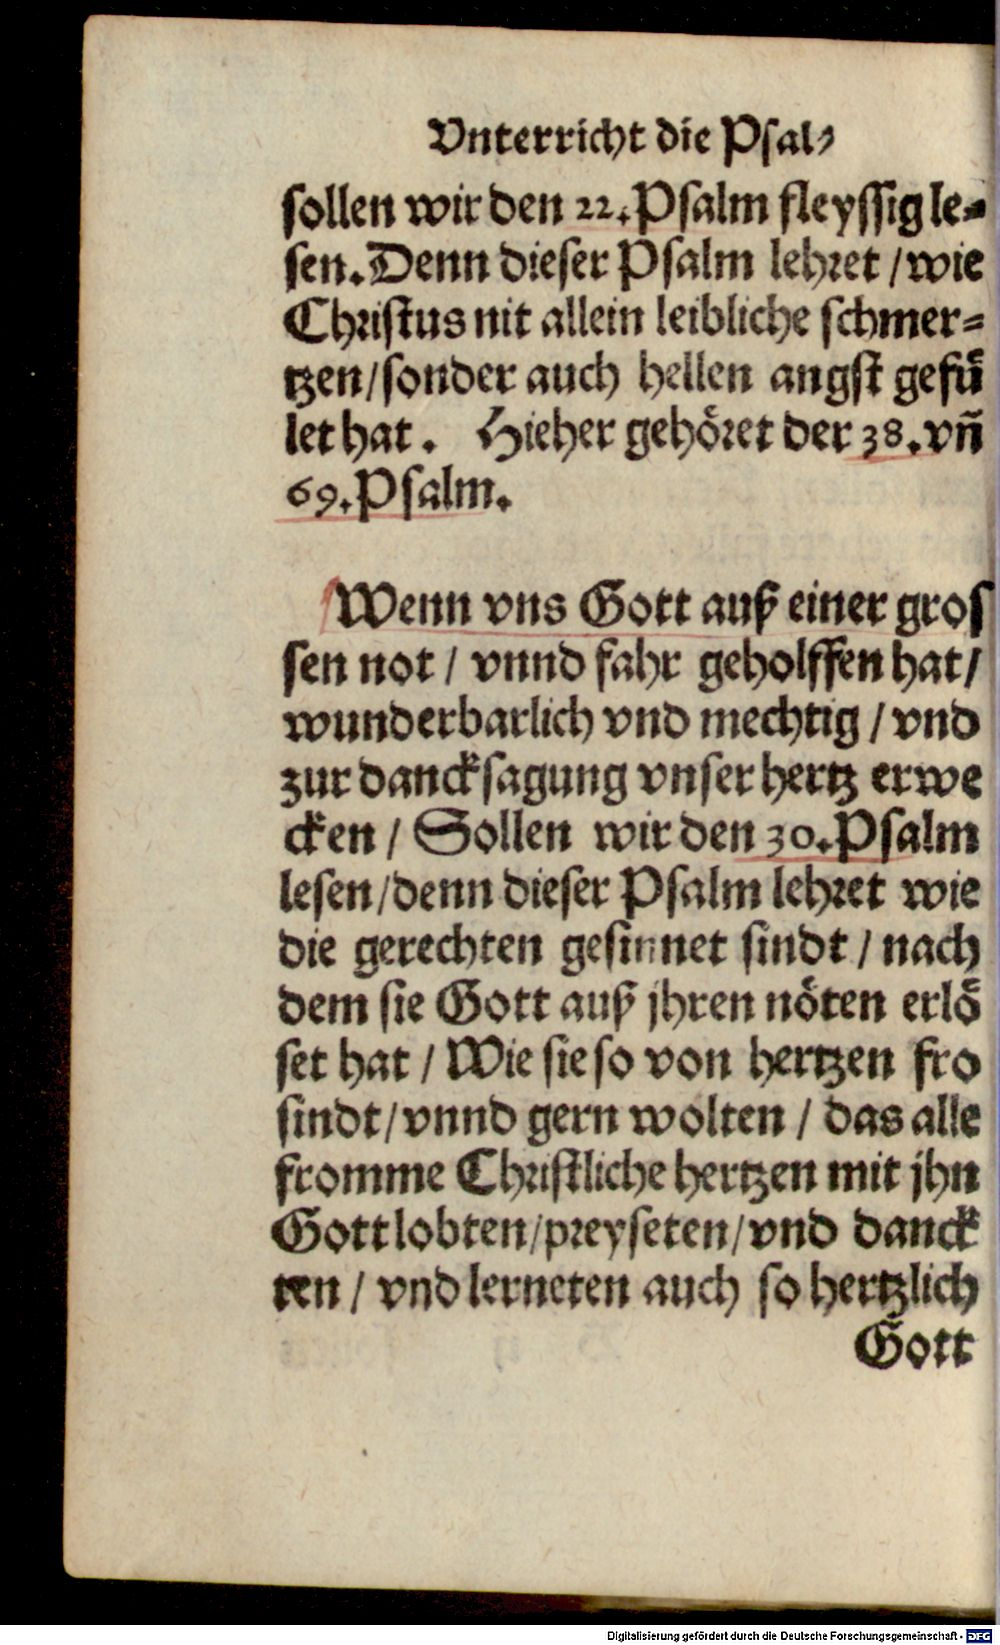 Vnterricht die Psal⸗
sollen wir den 22. Psalm fleyssig le⸗
sen. Denn dieser Psalm lehret / wie
Christus nit allein leibliche schmer⸗
tzen / sonder auch hellen angst gefuͤ
let hat. Hieher gehoͤret der 38. vñ
69. Psalm.
Wenn vns Gott auß einer gros
sen not / vnnd fahr geholffen hat /
wunderbarlich vnd mechtig / vnd
zur dancksagung vnser hertz erwe
cken / Sollen wir den 30. Psalm
lesen / denn dieser Psalm lehret wie
die gerechten gesinnet sindt / nach
dem sie Gott auß jhren noͤten erloͤ
set hat / Wie sie so von hertzen fro
sindt / vnnd gern wolten / das alle
fromme Christliche hertzen mit jhn
Gott lobten / preyseten / vnd danck
ten / vnd lerneten auch so hertzlich
Gott
Digitalisierung gefördert durch die Deutsche Forschungsgemeinschaft - DFG